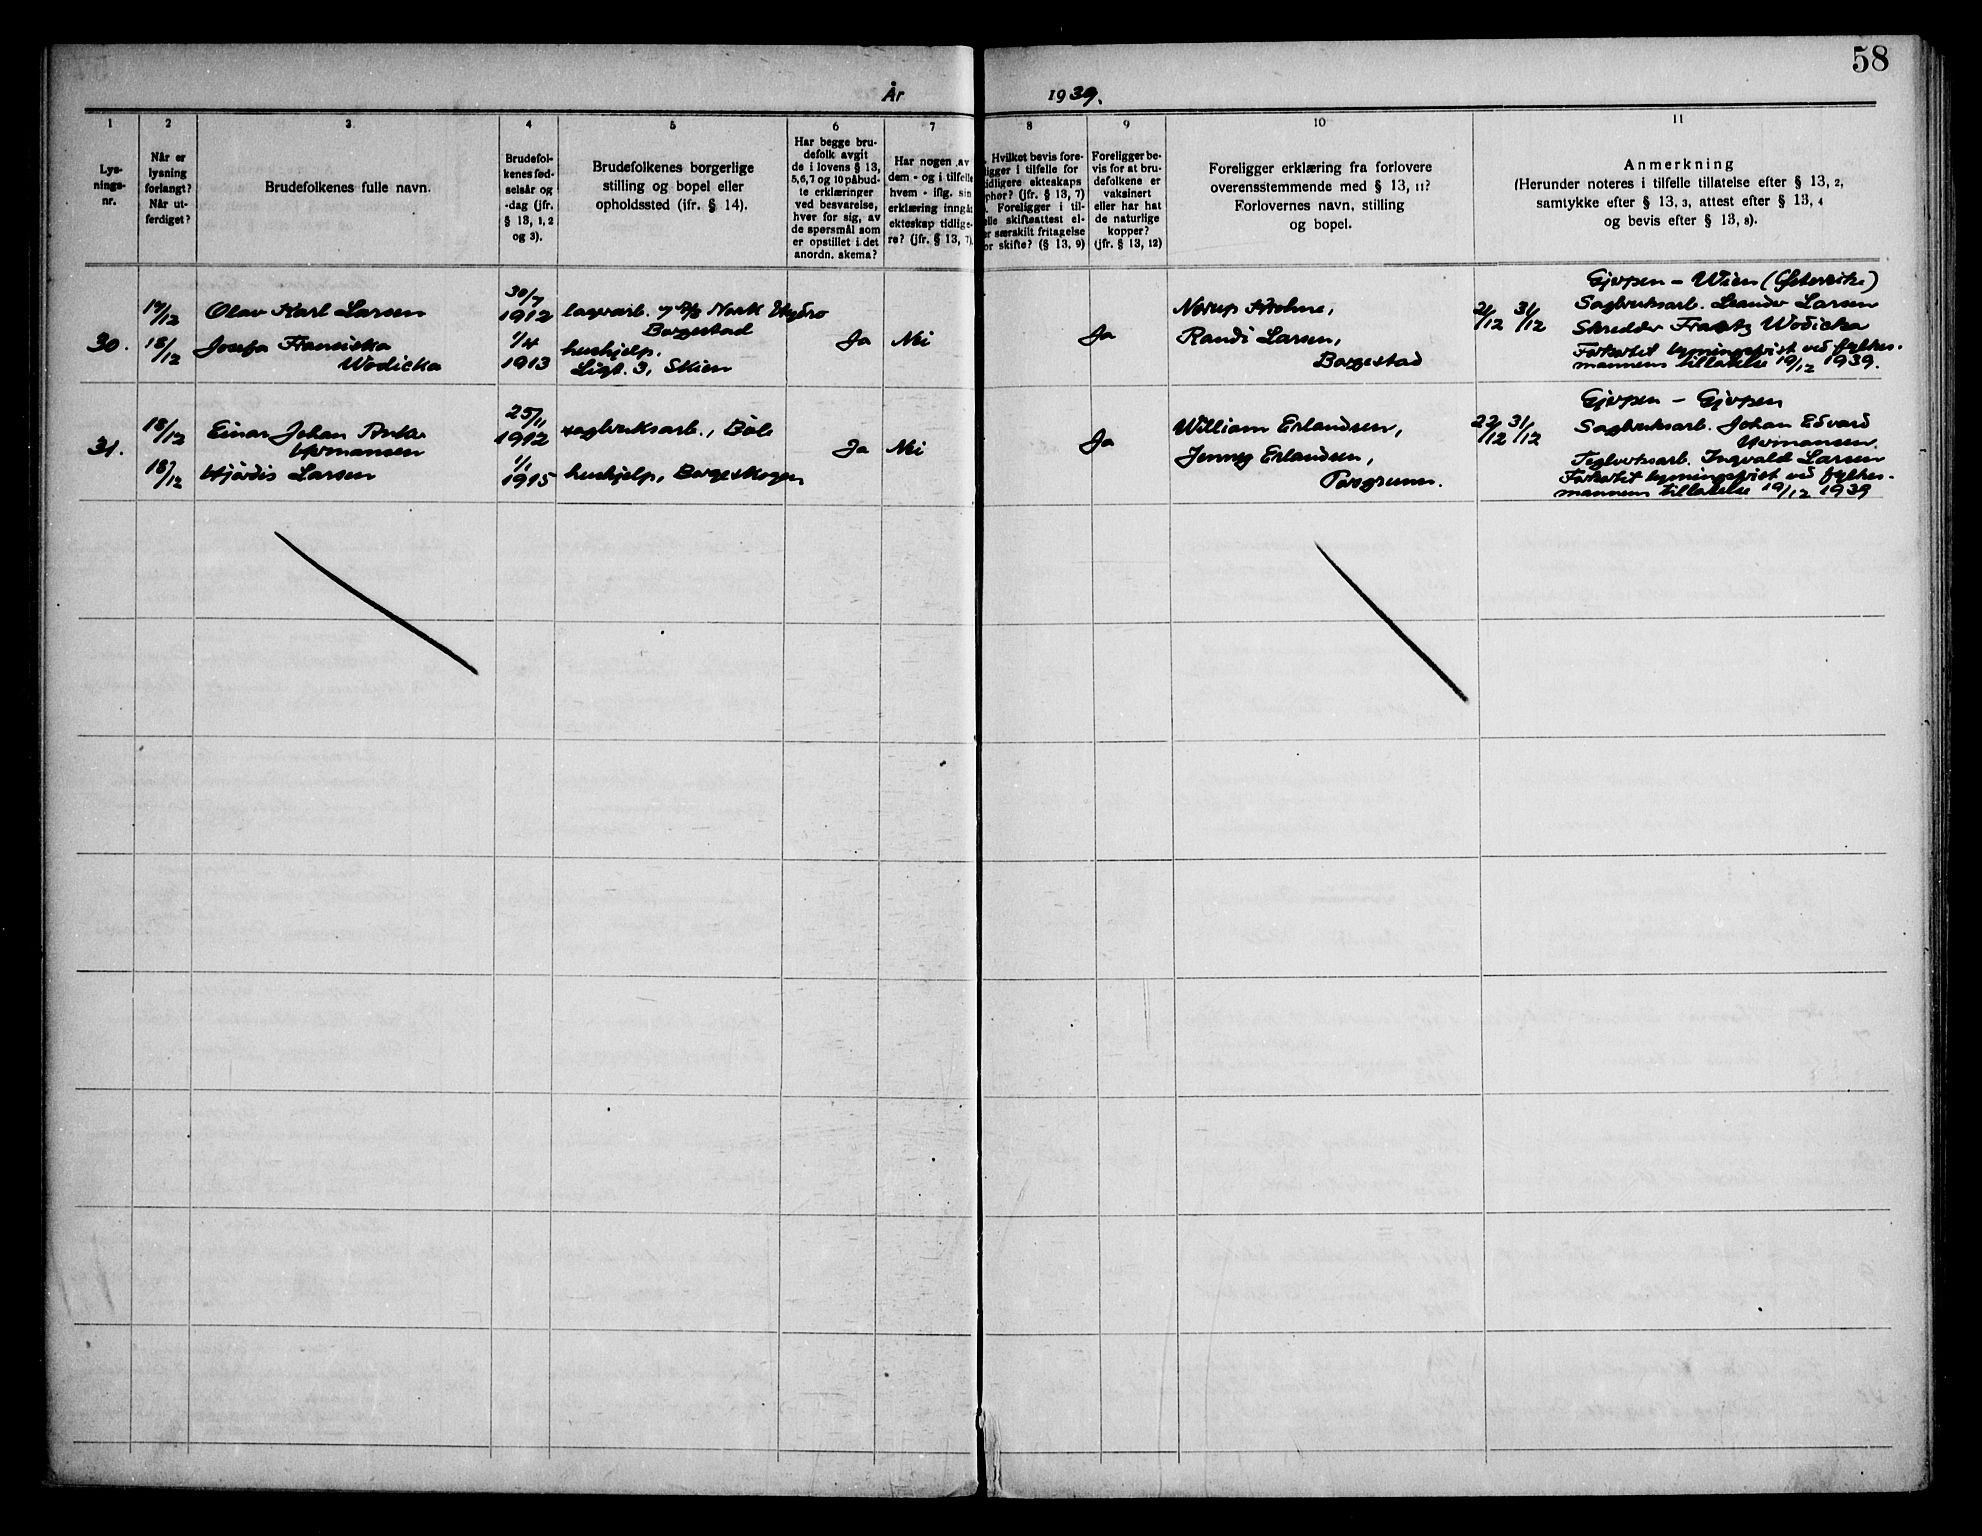 58
År 1939.
1
Lys-
nings-
nr.
2
Når er
lysning
forlangt?
Når ut-
ferdiget?
3
Brudefolkenes fulle navn.
4
Brudefol-
kenes fød-
selsår og
-dag (jfr.
§ 13, 1, 2
og 3).
5
Brudefolkenes borgerlige
stilling og bopel eller
opholdssted (ifr. § 14).
6
Har begge bru-
defolk avgit
de i lovens § 13,
5,6,7 og 10 påbud-
te erklæringer
ved besvarelse,
hver for sig, av
de spørsmål som
er opstillet i det
anordn. skema?
7
Har nogen av
dem - og i tilfelle
hvem - iflg. sin
erklæring inngåt
ekteskap tidlige-
re? (jfr. § 13, 7)
8
Hvilket bevis fore-
ligger i tilfelle for
tidligere ekteskaps
ophør? (jfr. § 13, 7)
Foreligger i til-
felle skifteattest el-
er særskilt fritagelse
for skifte? (§ 13, 9)
9
Foreligger be-
vis for at bru-
defolkene er
vaksinert
eller har hat
de naturlige
kopper?
(jfr. § 13, 12)
10
Foreligger erklæring fra forlovere
overensstemmende med § 13, 11?
Forlovernes navn, stilling
og bopel.
11
Anmerkning
(Herunder noteres i tilfelle tillatelse efter § 13, 2,
samtykke efter § 13, 3, attest efter § 13, 4
og bevis efter § 13, 8).
30.
17/12
18/12
Olav Karl Larsen
Josefa Franciska
Wodicka
30/7
1912
1/4
1913
lagrarb. v/ A/S Norsk Hydro
Borgestad
hushjelp,
Ligt. 3, Skien
Ja
Nei
Ja
Randi Larsen,
Borgestad
21/12 31/12
Gjerpen - Wien (Østerrike)
Sagbruksarb. Leander Larsen
Skredder Frantz Wodicka
Forkortet lysningsfrist ved fylkes-
mannens tillatelse 19/12 1939.
31.
18/12
18/12
Einar Johan Anker
Hermansen
Hjørdis Larsen
25/11
1912
1/1
1915
sagbruksarb., Bøle
hushjelp, Borgeskogen
Ja
Nei
Ja
William Erlandsen,
Jenny Erlandsen,
Porsgrunn.
22/12 31/12
Gjerpen - Gjerpen
Sagbruksarb. Johan Edvard
Hermansen.
Teglverksarb. Ingvald Larsen
Forkortet lysningsfrist ved fylkes-
mannens tillatelse 19/12 1939